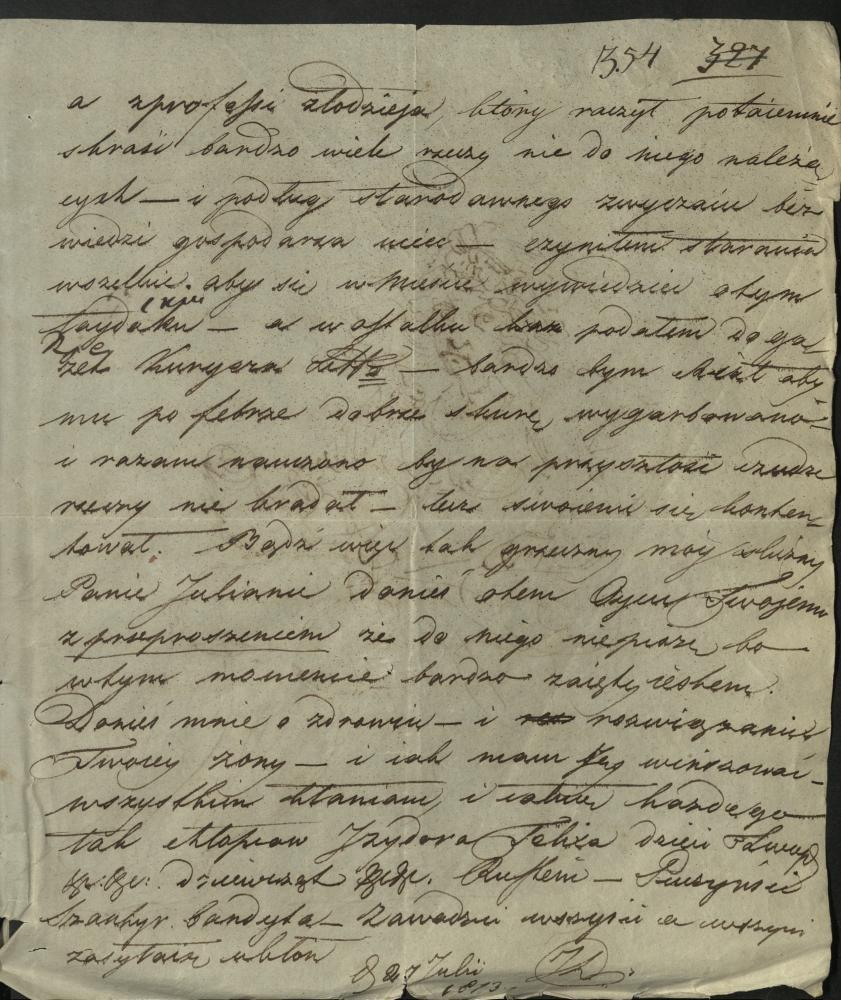 13.54 327
a z professi złodzieja, który raczył potaiemnie
skraść bardzo wiele rzeczy nie do niego należą
cych — i podług starodawnego zwyczaiu béz
wiedzi gospodarza — czyniłem starania
wszelkie. aby się w Mieście wywiedzieć otym
łaydaku — a w ostatku podałem do ga
zet Kuryera — bardzo bym rad aby
mu po febrze dobrze skurę wygarbowano —
i razem nauczono by na przyszłość cudze
rzeczy nie kradał — lecz swoiemi się konten
tował. Bądź więc tak grzeczny moy
Panie Julianie donieś otem Oycu Twojemu
z przeproszeniem że do niego niepiszę bo
wtym momencie bardzo zaięty iestem.
Donieś mnie o zdrowiu — i rozwiązaniu
Twoiey żony — i iak mam winszować —
wszystkim kłaniam, i każdego
tak chłopców Izydora Felixa dzieci
dziewcząt Rustem —
bandyta — Zawadzki wszyscy a wszyscy

D 27 Julii